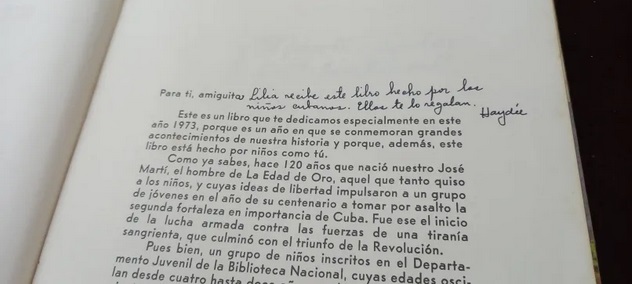 Para ti, amiguita Lilia recibe este libro hecho por los
niños cubanos. Ellos te lo regalan.
Haydée
Este es un libro que te dedicamos especialmente en este
año 1973, porque es un año en que se conmemoran grandes
acontecimientos de nuestra historia y porque, además, este
libro está hecho por niños como tú.
Como ya sabes, hace 120 años que nació nuestro José
Martí, el hombre de La Edad de Oro, aquel que tanto quiso
a los niños, y cuyas ideas de libertad impulsaron a un grupo
de jóvenes en el año de su centenario a tomar por asalto la
segunda fortaleza en importancia de Cuba. Fue ese el inicio
de la lucha armada contra las fuerzas de una tiranía
sangrienta, que culminó con el triunfo de la Revolución.
Pues bien, un grupo de niños inscritos en el Departa-
mento Juvenil de la Biblioteca Nacional, cuyas edades osci-
lan desde cuatro hasta doce